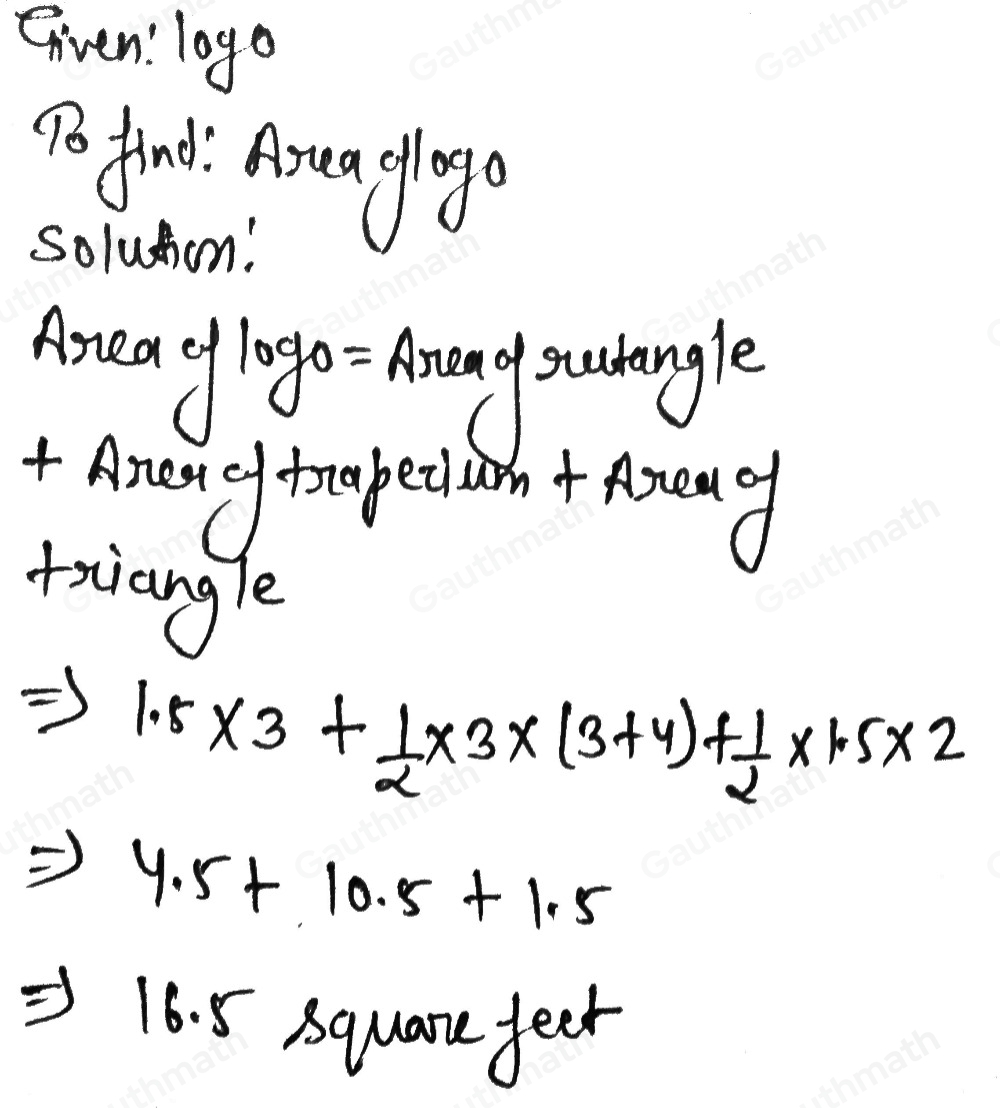 Given: logo
To find: Area of logo
Solution:
Area of logo = Area of rectangle
+ Area of trapezium + Area of
triangle
⇒ 1.5 × 3 + 1/2 × 3 × (3+4) + 1/2 × 1.5 × 2
⇒ 4.5 + 10.5 + 1.5
⇒ 16.5 square feet
Gauthmath